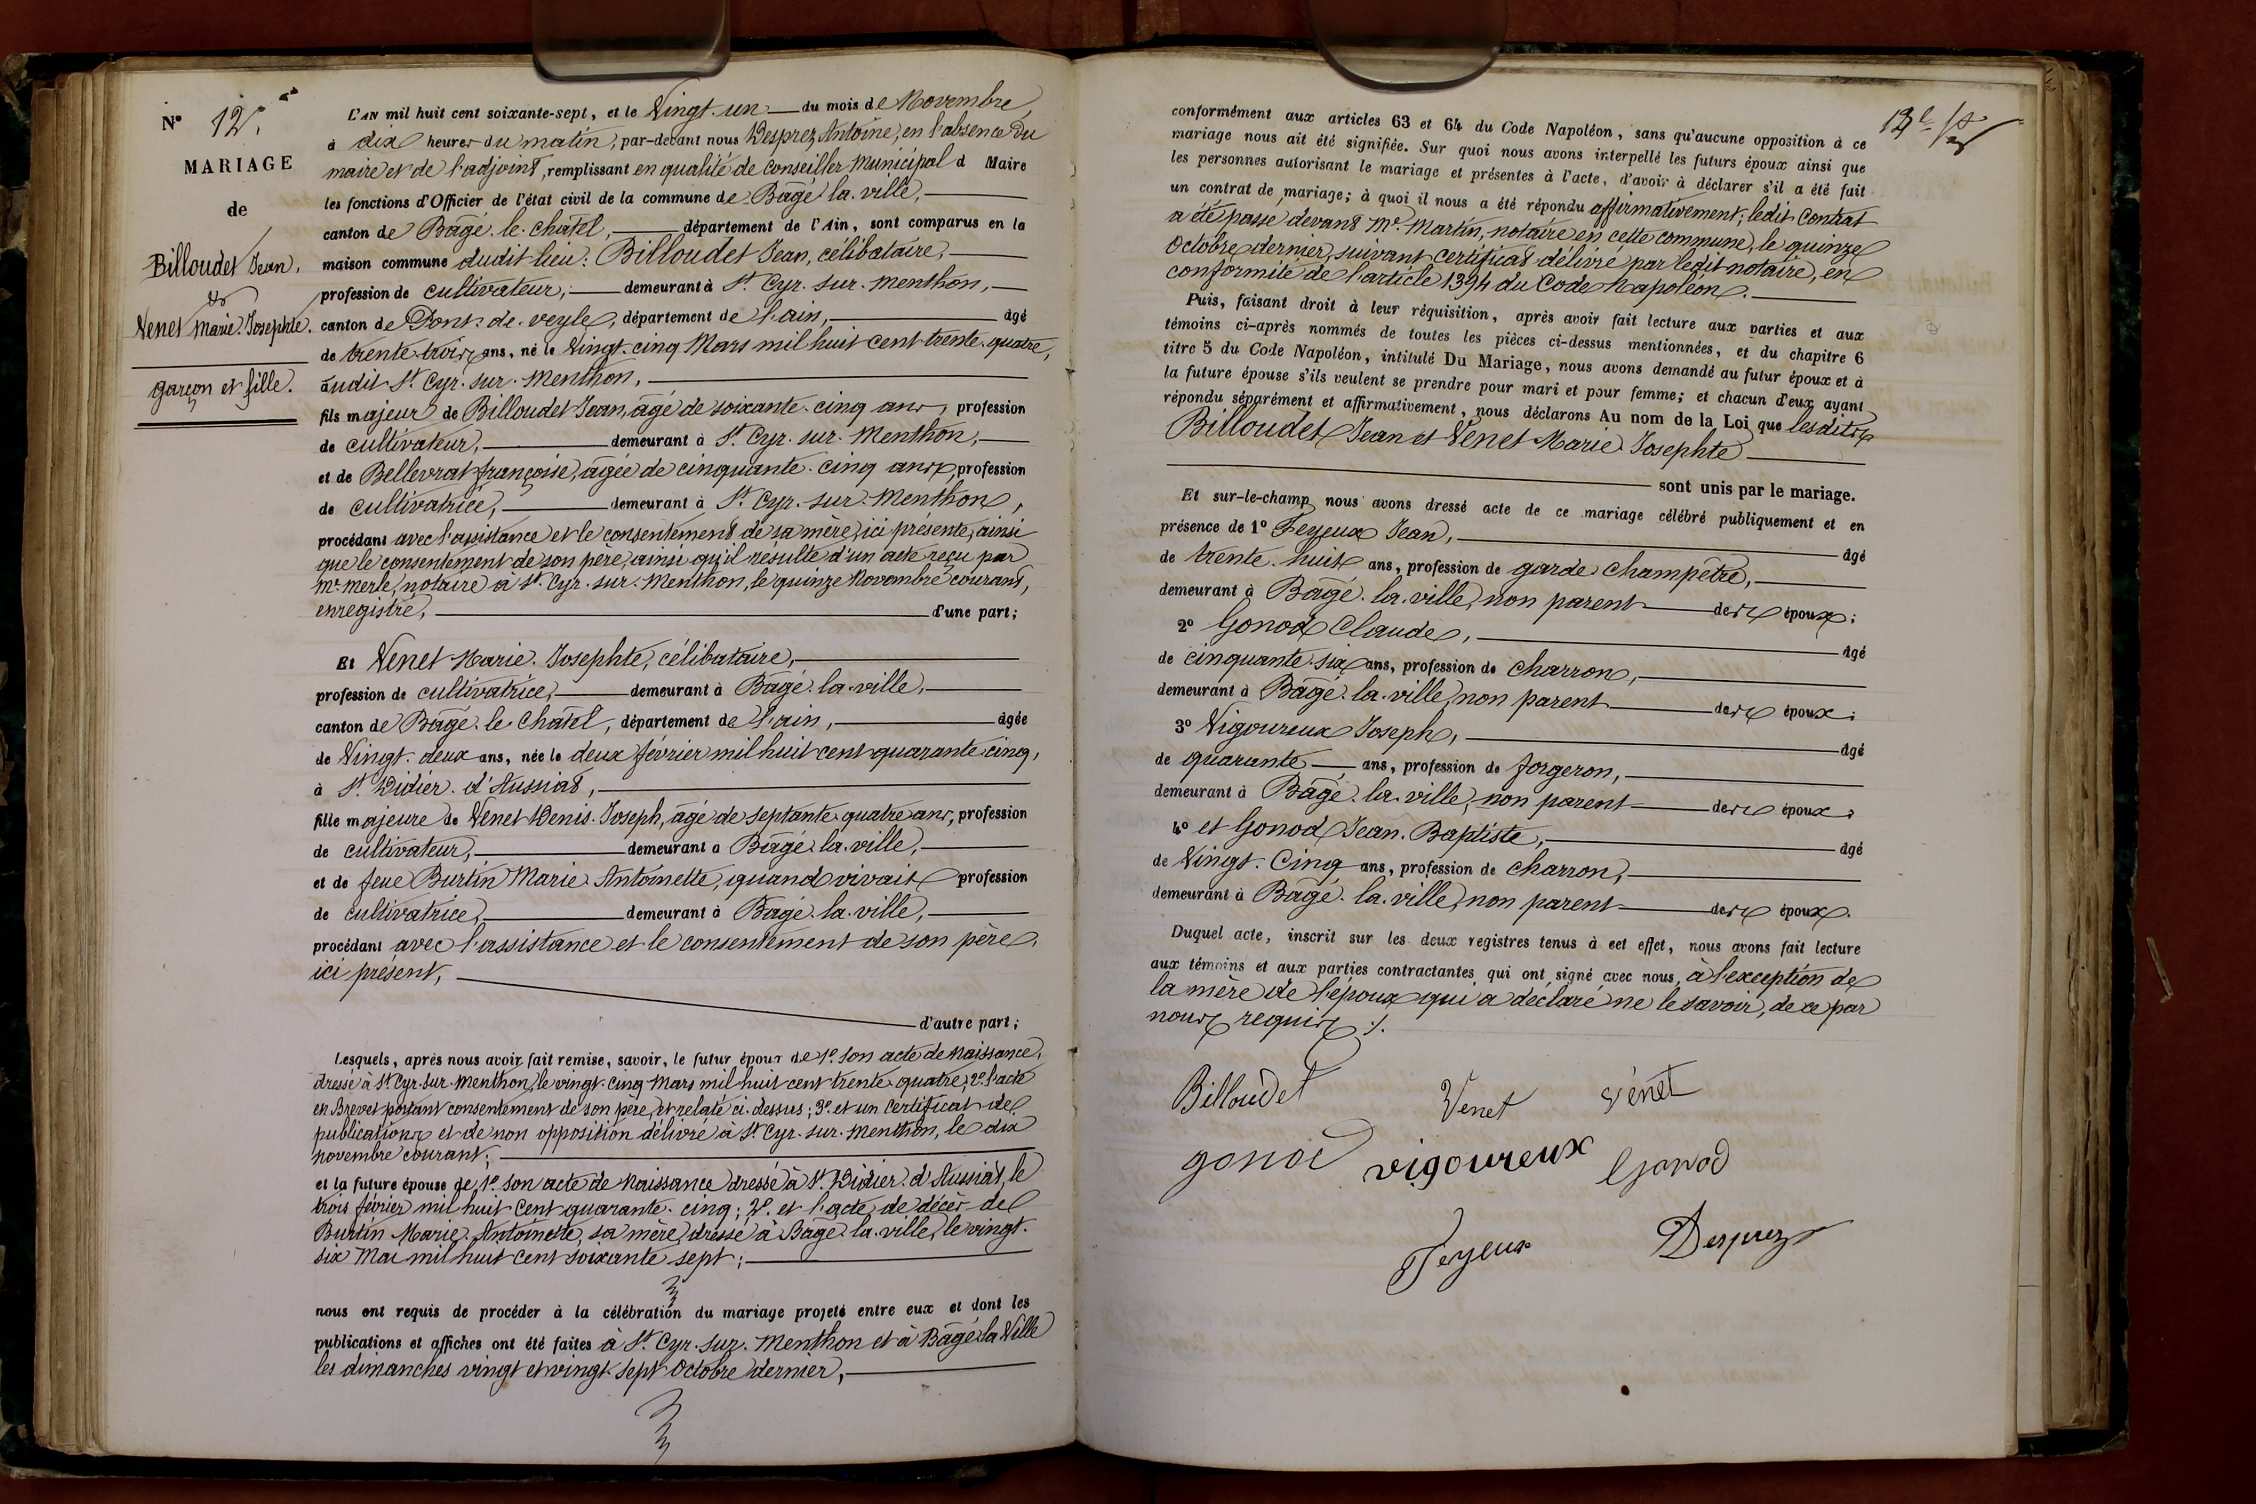 N° 12.
MARIAGE
de
Billoudet Jean,
&
Venet Marie Josephte.
garçon et fille.
L'AN mil huit cent soixante-sept, et le Vingt-un du mois de Novembre,
à dix heures du matin, par-devant nous Desprez Antoine, en l'absence du
maire et de l'adjoint, remplissant en qualité de Conseiller Municipal d Maire
les fonctions d'Officier de l'état civil de la commune de Bâgé-la-ville,
canton de Bâgé-le-Châtel, département de l'Ain, sont comparus en la
maison commune dudit lieu: Billoudet Jean, célibataire,
profession de cultivateur, demeurant à St. Cyr-sur-Menthon,
canton de Pont-de-veyle, département de l'ain, âgé
de trente-trois ans, né le Vingt-cinq Mars mil huit cent trente-quatre,
audit St. Cyr-sur-Menthon,
fils majeur de Billoudet Jean, âgé de soixante-cinq ans, profession
de cultivateur, demeurant à St. Cyr-sur-Menthon,
et de Bellevrat françoise, âgée de cinquante-cinq ans, profession
de cultivatrice, demeurant à St. Cyr-sur-Menthon,
procédant avec l'assistance et le consentement de sa mère, ici présente, ainsi
que le consentement de son père, ainsi qu'il résulte d'un acte reçu par
Mr. Merle, notaire à St. Cyr-sur-Menthon, le quinze Novembre courant,
enregistré, d'une part;
Et Venet Marie-Josephte, célibataire,
profession de cultivatrice, demeurant à Bâgé-la-ville,
canton de Bâgé-le-Châtel, département de l'ain, âgée
de Vingt-deux ans, née le deux février mil huit cent quarante-cinq,
à St. Didier-d'Aussiat,
fille majeure de Venet Denis-Joseph, âgé de septante-quatre ans, profession
de cultivateur, demeurant à Bâgé-la-ville,
et de feue Burtin Marie-Antoinette, quand vivait profession
de cultivatrice, demeurant à Bâgé-la-ville,
procédant avec l'assistance et le consentement de son père,
ici présent,
d'autre part;
Lesquels, après nous avoir fait remise, savoir, le futur époux de 1° son acte de Naissance,
dressé à St. Cyr-sur-Menthon, le vingt-cinq Mars mil huit cent trente-quatre; 2° l'acte
en Brevet portant consentement de son père, et relaté ci-dessus; 3° et un Certificat de
publications et de non opposition délivré à St. Cyr-sur-Menthon, le dix
novembre courant;
et la future épouse de, 1° son acte de Naissance dressé à St. Didier-d'Aussiat, le
trois février mil huit cent quarante-cinq; 2° et l'acte de décès de
Burtin Marie-Antoinette, sa mère, dressé à Bâgé-la-ville, le vingt-
six Mai mil huit cent soixante sept;
nous ont requis de procéder à la célébration du mariage projeté entre eux et dont les
publications et affiches ont été faites à St. Cyr-sur-Menthon et à Bâgé la Ville
les dimanches vingt et vingt-sept Octobre dernier,
conformément aux articles 63 et 64 du Code Napoléon, sans qu'aucune opposition à ce
mariage nous ait été signifiée. Sur quoi nous avons interpellé les futurs époux ainsi que
les personnes autorisant le mariage et présentes à l'acte, d'avoir à déclarer s'il a été fait
un contrat de mariage; à quoi il nous a été répondu affirmativement; ledit Contrat
a été passé devant Me. Martin, notaire en cette commune, le quinze
Octobre dernier, suivant certificat délivré par ledit notaire, en
conformité de l'article 1394 du Code Napoléon.
Puis, faisant droit à leur réquisition, après avoir fait lecture aux parties et aux
témoins ci-après nommés de toutes les pièces ci-dessus mentionnées, et du chapitre 6
titre 5 du Code Napoléon, intitulé Du Mariage, nous avons demandé au futur époux et à
la future épouse s'ils veulent se prendre pour mari et pour femme; et chacun d'eux ayant
répondu séparément et affirmativement, nous déclarons Au nom de la Loi que lesdits
Billoudet Jean et Venet Marie Josephte
sont unis par le mariage.
Et sur-le-champ nous avons dressé acte de ce mariage célébré publiquement et en
présence de 1° Feyeux Jean, âgé
de trente-huit ans, profession de garde Champêtre,
demeurant à Bâgé-la-ville, non parent des époux;
2° Gonod Claude, âgé
de cinquante-six ans, profession de charron,
demeurant à Bâgé-la-ville, non parent des époux;
3° Vigoureux Joseph, âgé
de quarante ans, profession de forgeron,
demeurant à Bâgé-la-ville, non parent des époux;
4° et Gonod Jean-Baptiste, âgé
de Vingt-Cinq ans, profession de charron,
demeurant à Bâgé-la-ville, non parent des époux.
Duquel acte, inscrit sur les deux registres tenus à cet effet, nous avons fait lecture
aux témoins et aux parties contractantes qui ont signé avec nous, à l'exception de
la mère de l'époux qui a déclaré ne le savoir, de ce par
nous requis ./.
Billoudet Venet Vénet
gonod vigoureux Gonod
Feyeux Desprez